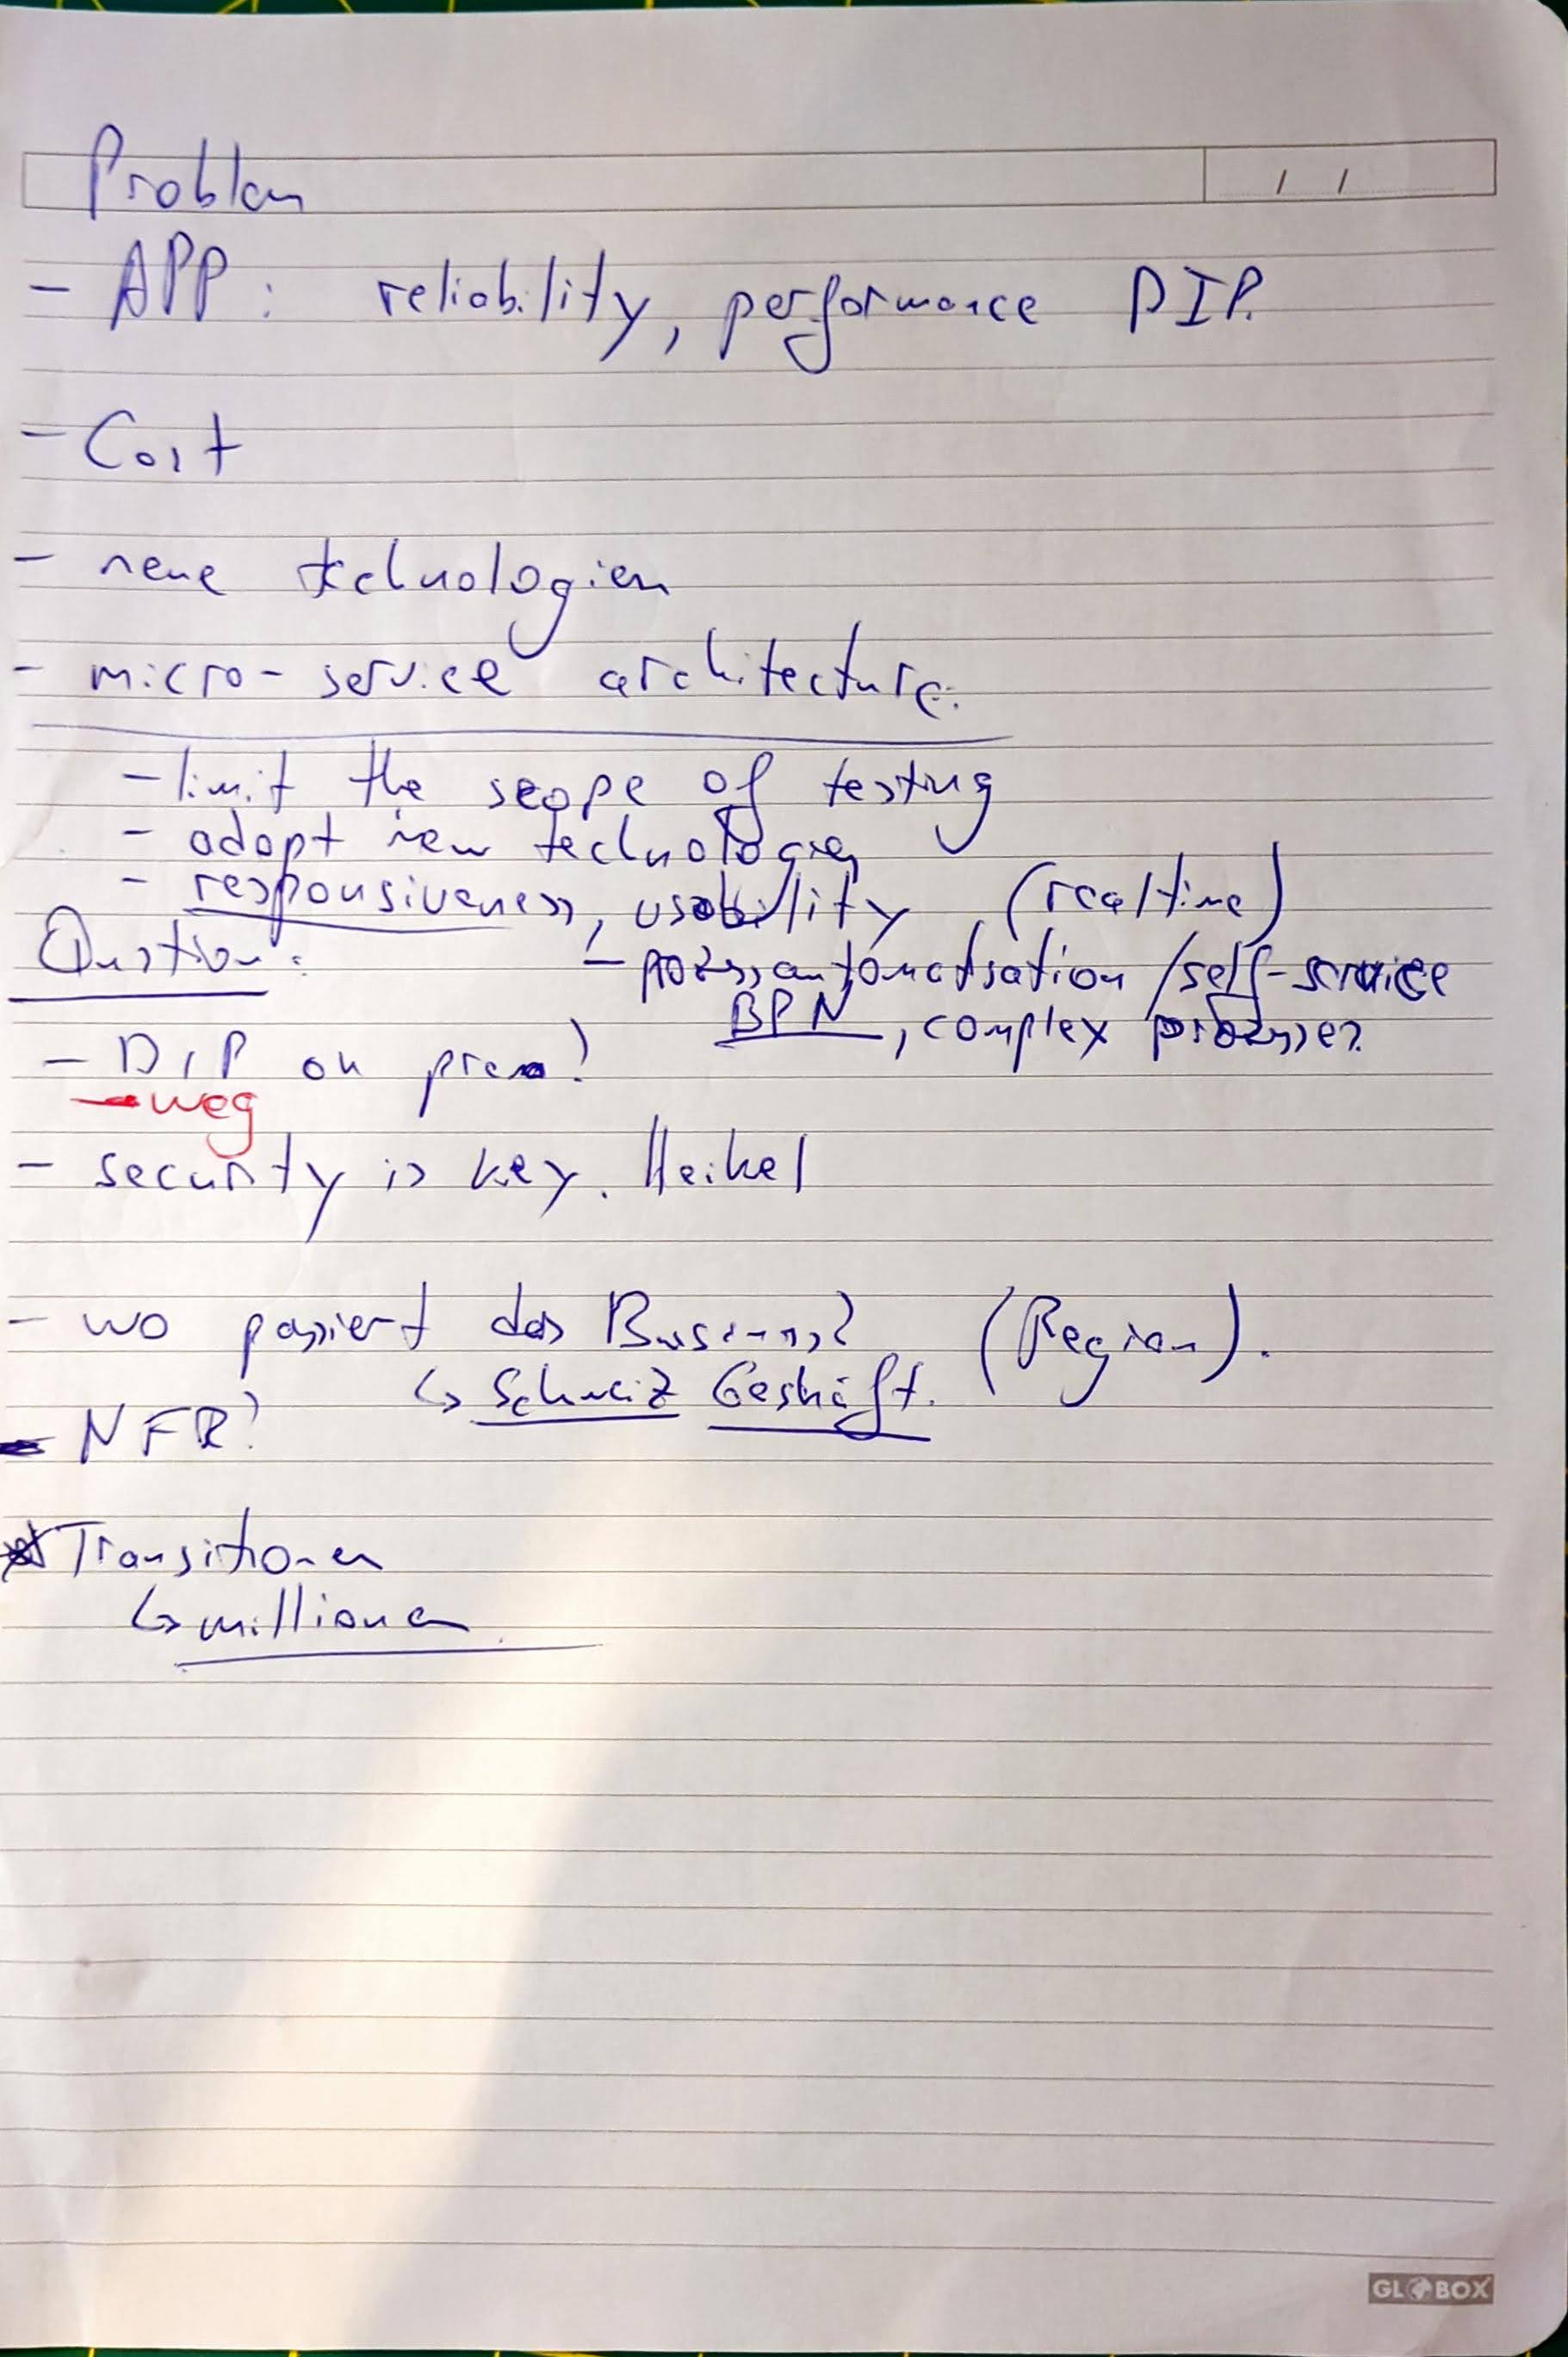 Problem
/ /
- APP : reliability, performance DIP.
- Cost
- neue technologien
- micro-service architecture.
- limit the scope of testing
- adopt new technologies
- responsiveness, usability (realtime)
Question:
- prozessautomatisation / self-service
BPN, complex prozesses
- DIP on prem?
- weg
- security is key.
- wo passiert das Business? (Region).
↳ Schweiz Geshäft.
- NFR?
Transitionen
↳ millionen
GLOBOX